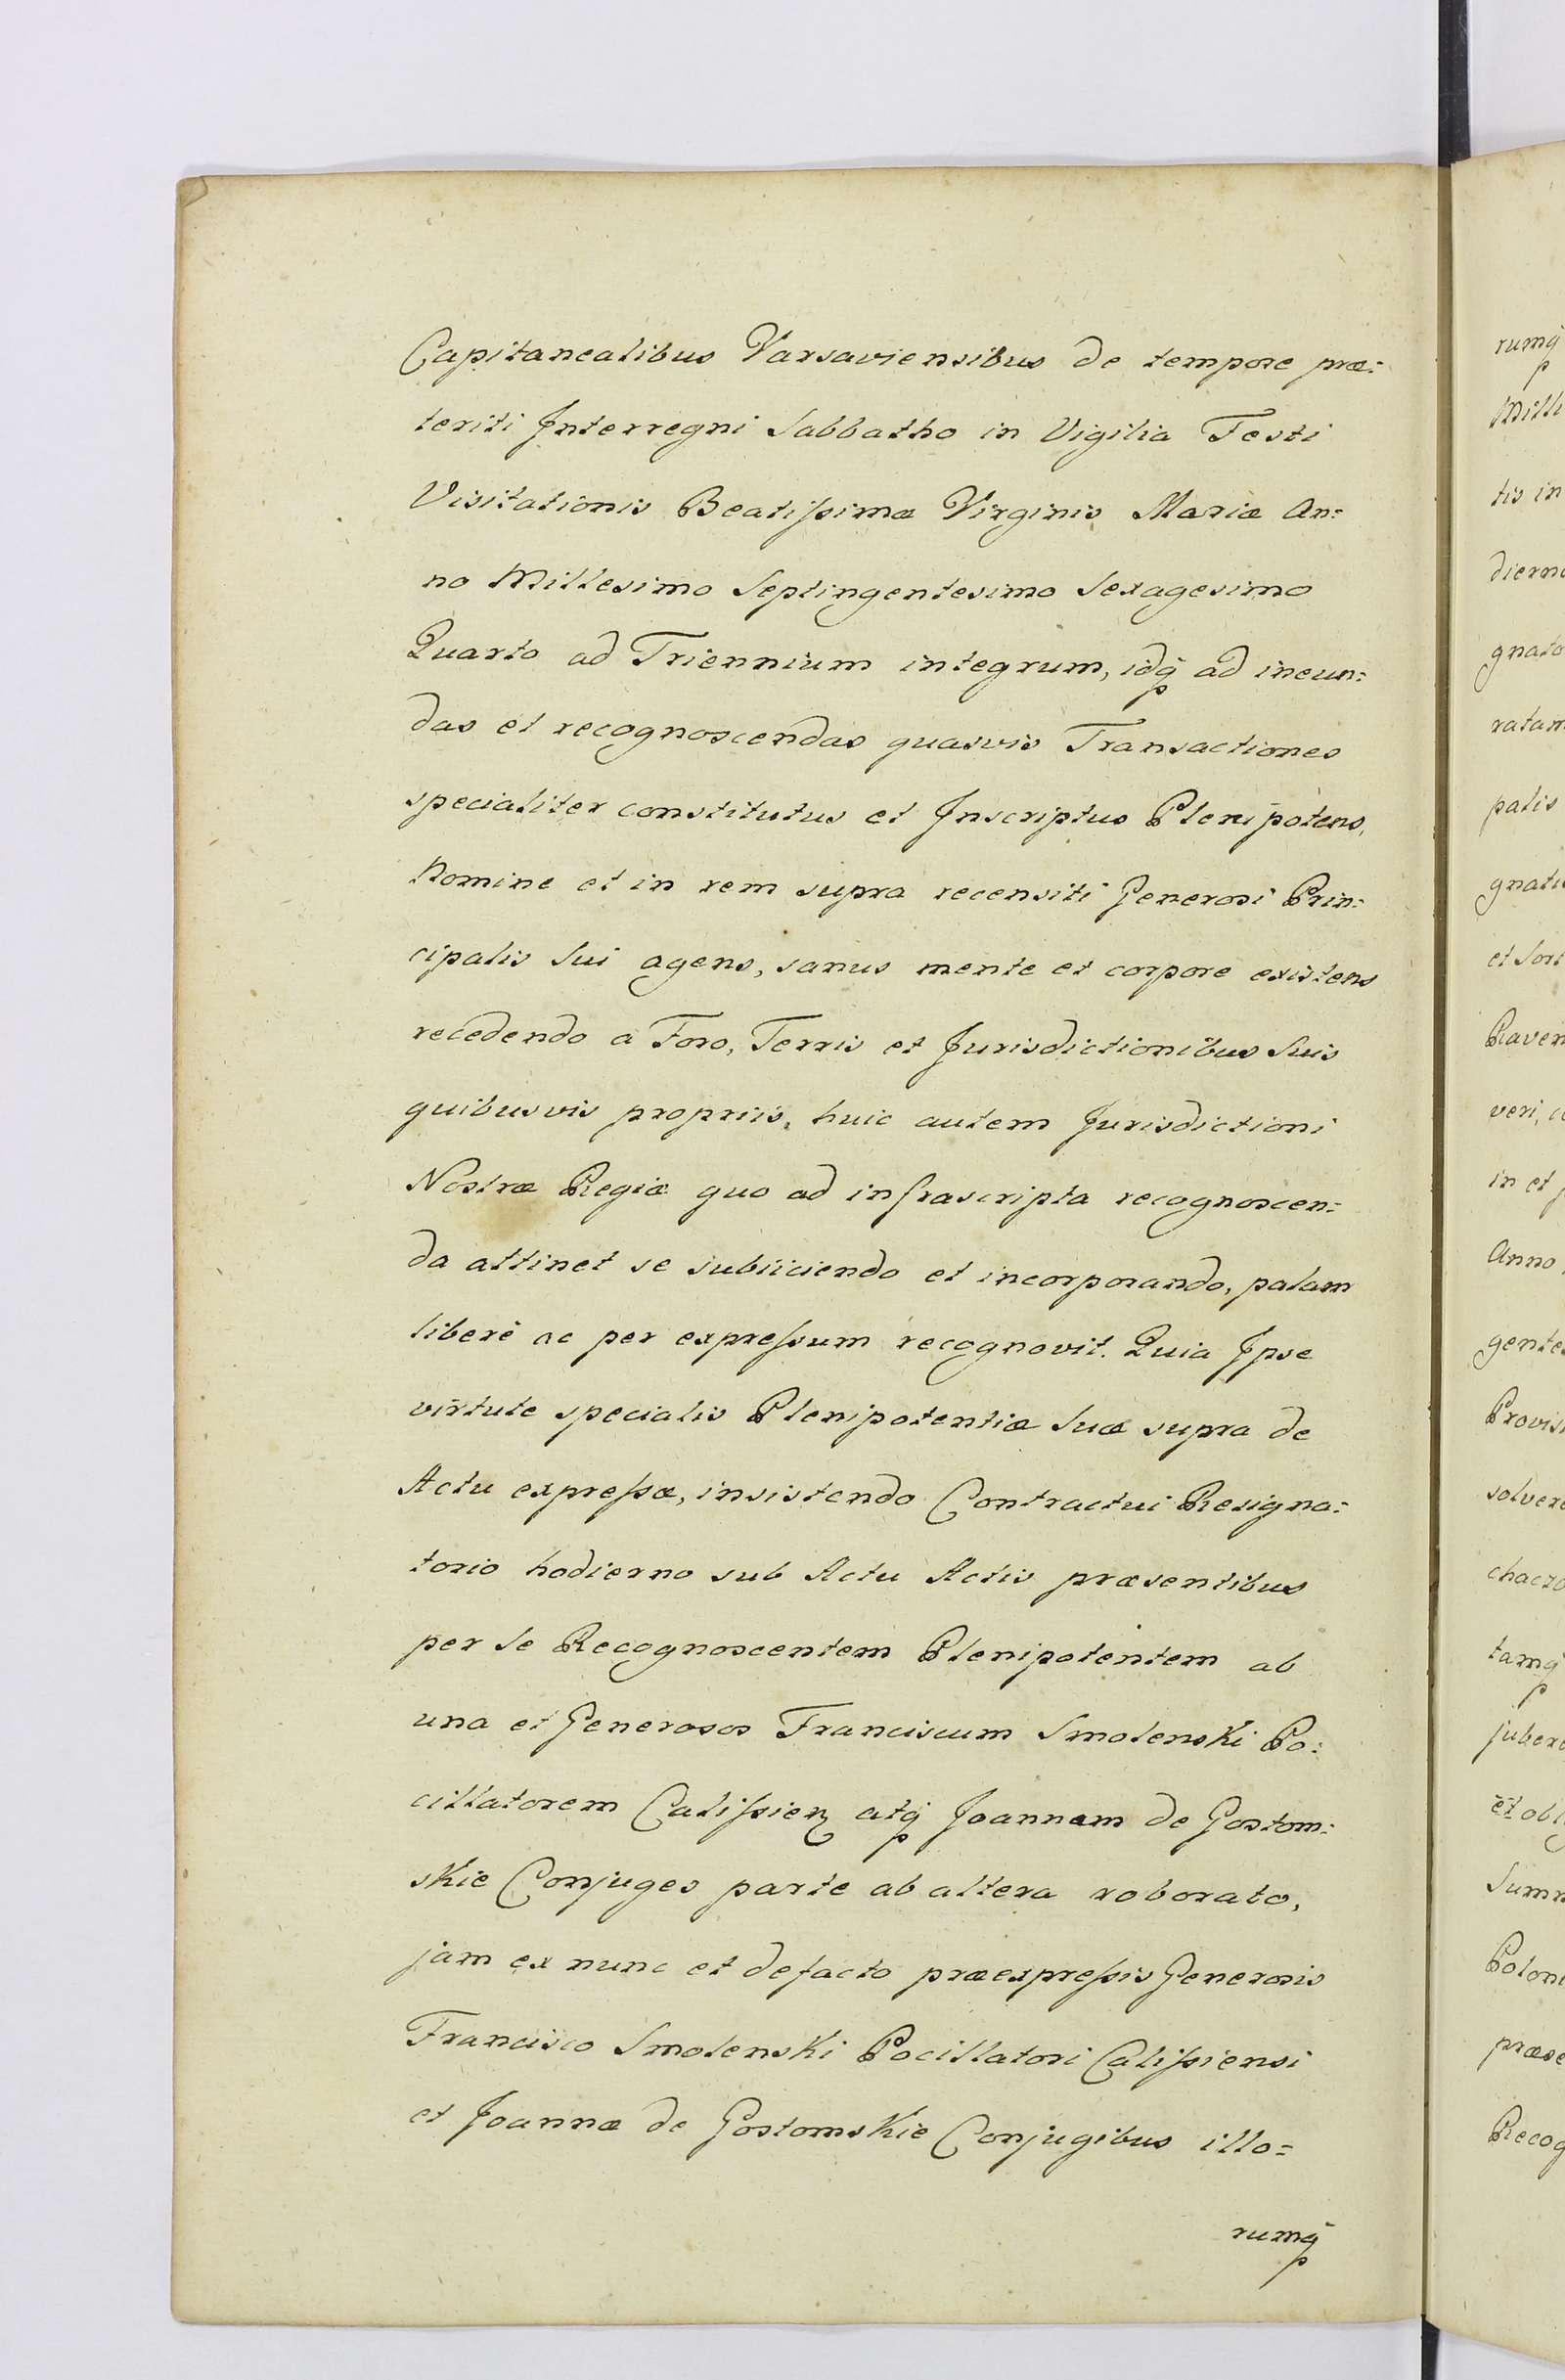 Capitanealibus Varsaviensibus de tempore præ=
teriti Interregni Sabbatho in Vigilia Festi
Visitationis Beatissimæ Virginis Mariæ An=
no Millesimo Septingentesimo Sexagesimo
Quarto ad Triennium integrum, idq̃ ad ineun=
das et recognoscendas quasvis Transactiones
specialiter constitutus et Inscriptus Plenipotens,
Nomine et in rem supra recensiti Generosi Prin=
cipalis Sui agens, sanus mente et corpore existens
recedendo a Foro, Terris et Jurisdictionibus Suis
quibusvis propriis, huic autem Jurisdictioni
Nostræ Regiæ quo ad infrascripta recognoscen=
da attinet se subiiciendo et incorporando, palam
liberè ac per expressum recognovit. Quia Ipse
virtute specialis Plenipotentiæ Suæ supra de
Actu expressæ, insistendo Contractui Resigna=
torio hodierno sub Actu Actis præsentibus
per Se Recognoscentem Plenipotentem ab
una et Generosos Franciscum Smolenski Po=
cillatorem Calissien atq̃ Joannam de Gostom=
skie Conjuges parte ab altera roborato,
jam ex nunc et defacto præexpressis Generosis
Francisco Smolenski Pocillatori Calissiensi
et Joannæ de Gostomskie Conjugibus illo=
rumq̃
rumq̃
Mill
tis in
dierno
gnato
ratam
palis
gnati
et Sort
Raven
veri,
in et
Anno
gentes
Provis
solver
chaczo
tamq̃
juber
et obl
Summ
Polon
præse
Recog